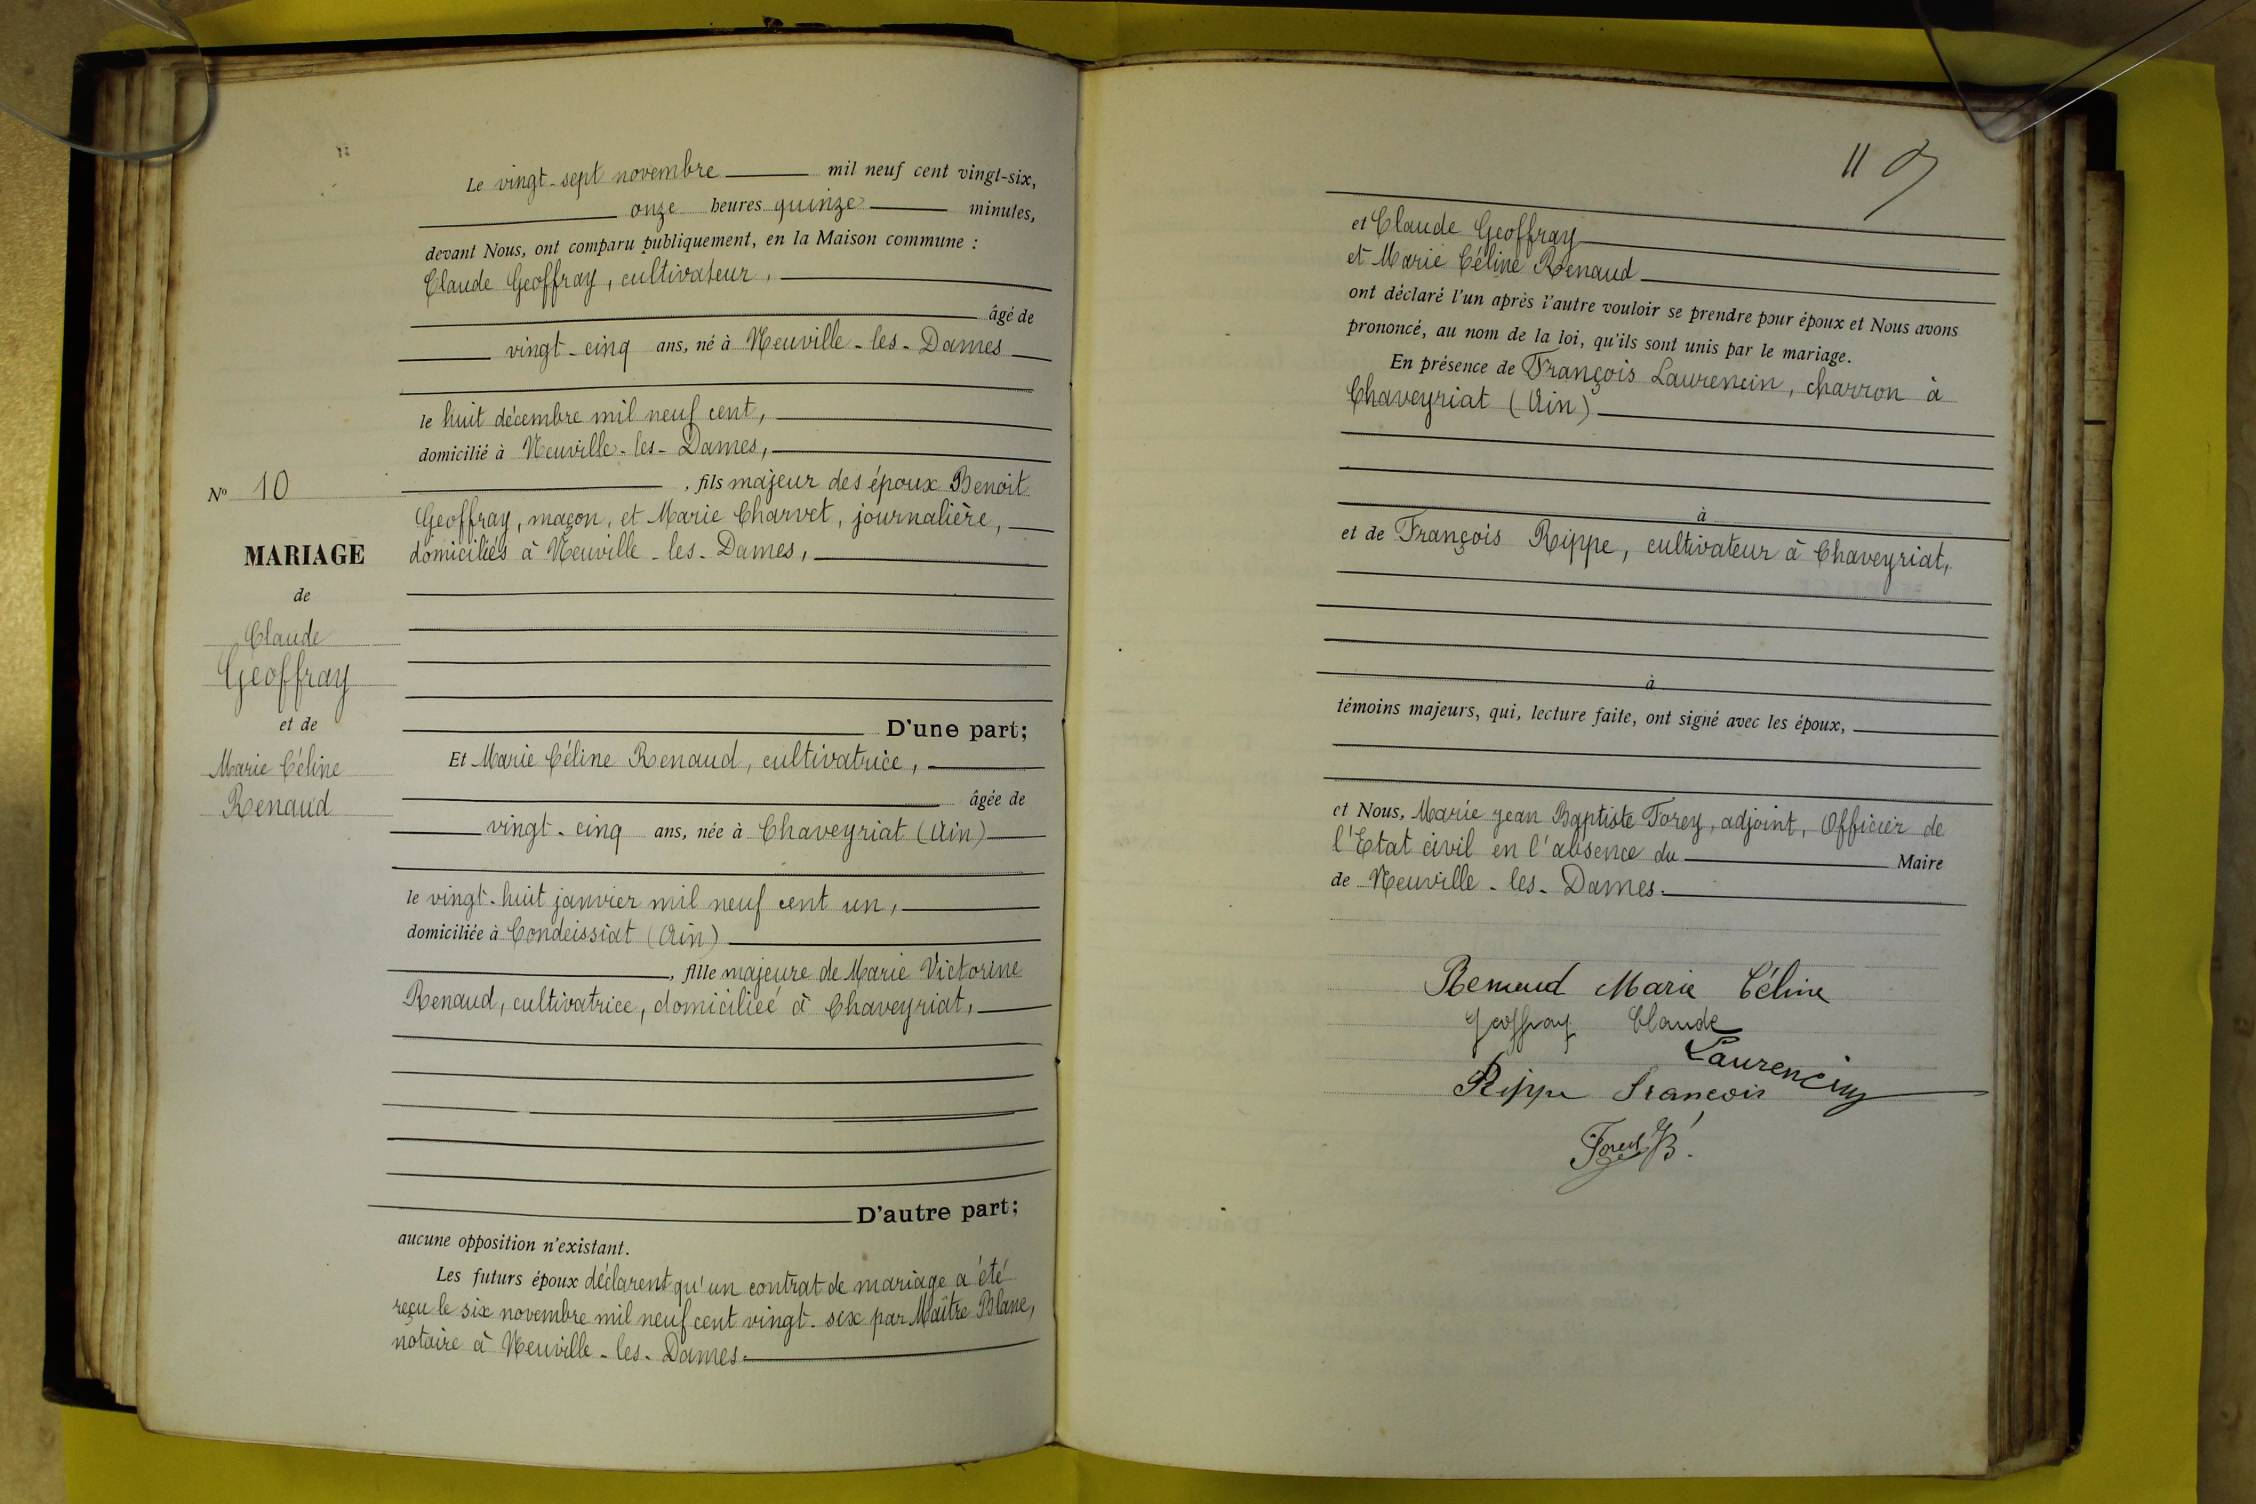 Le vingt-sept novembre mil neuf cent vingt-six,
onze heures quinze minutes,
devant Nous, ont comparu publiquement, en la Maison commune :
Claude Geoffray, cultivateur,
âgé de
vingt-cinq ans, né à Neuville-les-Dames
le huit décembre mil neuf cent,
domicilié à Neuville-les-Dames,
, fils majeur des époux Benoit
Geoffray, maçon, et Marie Charvet, journalière,
domiciliés à Neuville-les-Dames,
D'une part;
Et Marie Céline Renaud, cultivatrice,
âgée de
vingt-cinq ans, née à Chaveyriat (Ain)
le vingt-huit janvier mil neuf cent un,
domiciliée à Condeissiat (Ain)
, fille majeure de Marie Victorine
Renaud, cultivatrice, domiciliée à Chaveyriat,
D'autre part;
aucune opposition n'existant.
Les futurs époux déclarent qu'un contrat de mariage a été
reçu le six novembre mil neuf cent vingt-six par Maître Blanc,
notaire à Neuville-les-Dames.
No 10
MARIAGE
de
Claude
Geoffray
et de
Marie Céline
Renaud
11
et Claude Geoffray
et Marie Céline Renaud
ont déclaré l'un après l'autre vouloir se prendre pour époux et Nous avons
prononcé, au nom de la loi, qu'ils sont unis par le mariage.
En présence de François Laurencin, charron à
Chaveyriat (Ain)
à
et de François Rippe, cultivateur à Chaveyriat,
à
témoins majeurs, qui, lecture faite, ont signé avec les époux,
et Nous, Marie Jean Baptiste Forey, adjoint, Officier de
l'Etat civil en l'absence du Maire
de Neuville-les-Dames.
Renaud Marie Céline
Geoffray Claude
Laurencin
Rippe François